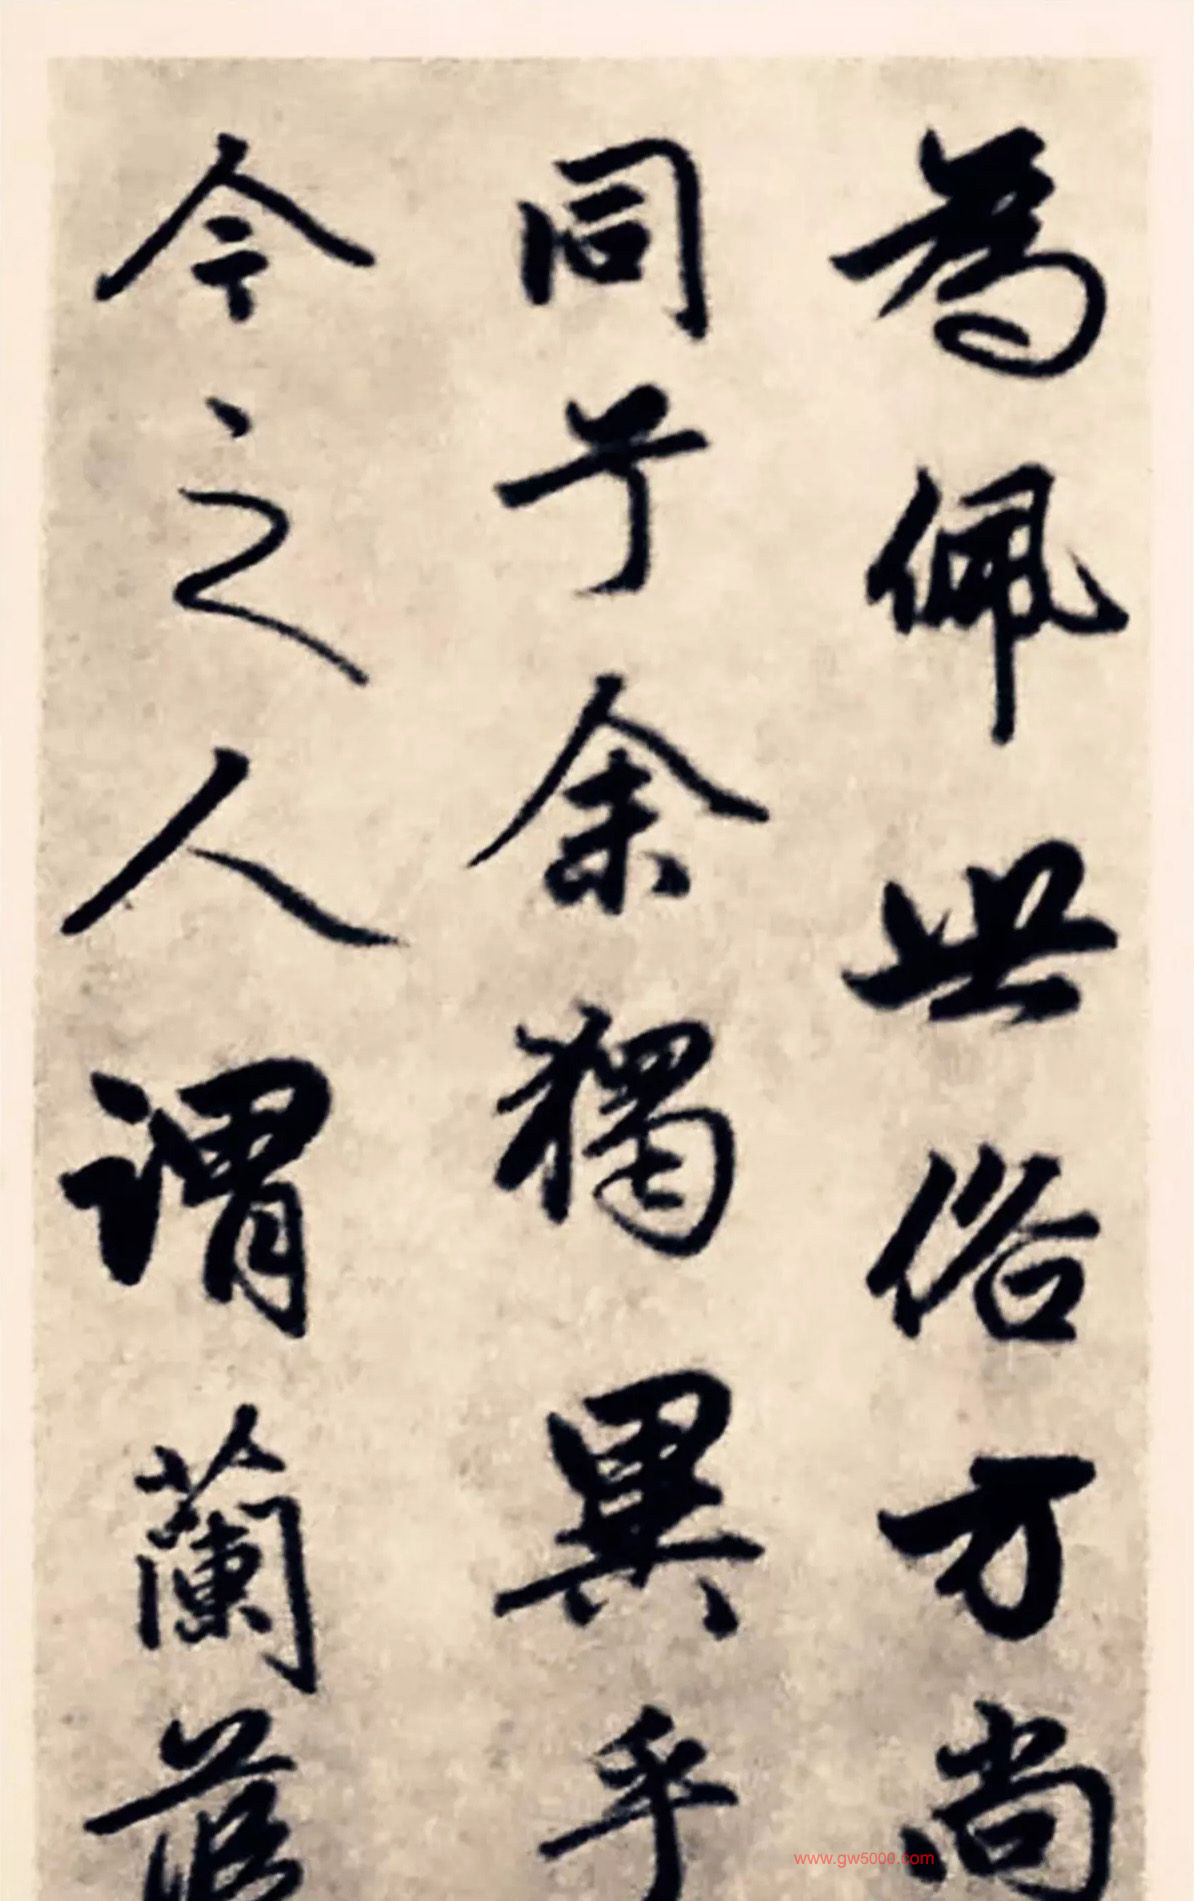 為佩世俗方尚
同乎余獨異乎
今之人謂蘭
www.gw5000.com